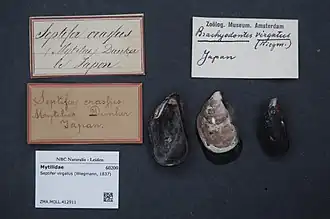 Septifer crassus
(Mytilus) Dunker
Japan
Septifer crassus
Mytilus Dunker
Japan.
Zoölog. Museum, Amsterdam
Brachyodontes virgatus
(Wiegm.)
Japan
NBC Naturalis - Leiden
Mytilidae
Septifer virgatus (Wiegmann, 1837)
ZMA.MOLL.412911